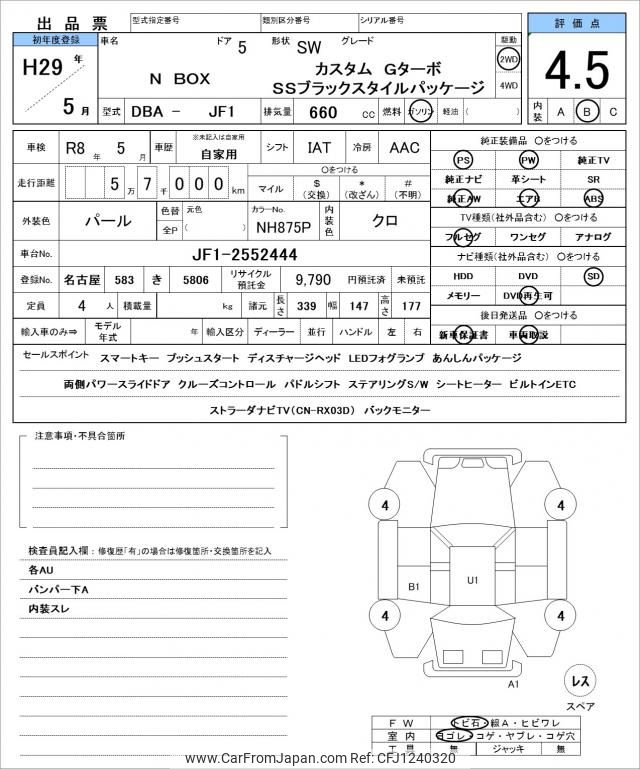 出品票 型式指定番号 類別区分番号 シリアル番号 評価点
初年度登録 車名 ドア 5 形状 SW グレード 駆動
H29 年 5 月
N BOX カスタム Gターボ
SSブラックスタイルパッケージ
2WD
4WD
4.5
型式 DBA - JF1 排気量 660 cc 燃料 ガソリン 軽油 ( ) 内装 A B C
車検 R8 年 5 月 車歴 ※未記入は自家用 自家用 シフト IAT 冷房 AAC
純正装備品 〇をつける
PS PW 純正TV
純正ナビ 革シート SR
純正AW エアB ABS
走行距離 5 万 7 千 0 0 0 km
〇をつける
マイル $ (交換) * (改ざん) # (不明)
TV種類(社外品含む) 〇をつける
フルセグ ワンセグ アナログ
外装色 パール 色替 元色 全P ( ) カラーNo. NH875P 内装色 クロ
ナビ種類(社外品含む) 〇をつける
車台No. JF1-2552444
HDD DVD SD
メモリー DVD再生可
登録No. 名古屋 583 き 5806 リサイクル預託金 9,790 円預託済 未預託
定員 4 人 積載量 kg 諸元 長さ 339 幅 147 高さ 177
後日発送品 〇をつける
新車保証書 車両取説
輸入車のみ⇒ モデル年式 年 輸入区分 ディーラー 並行 ハンドル 左 右
セールスポイント スマートキー プッシュスタート ディスチャージヘッド LEDフォグランプ あんしんパッケージ
両側パワースライドドア クルーズコントロール パドルシフト ステアリングS/W シートヒーター ビルトインETC
ストラーダナビTV(CN-RX03D) バックモニター
注意事項・不具合箇所
検査員記入欄：修復歴「有」の場合は修復箇所・交換箇所を記入
各AU
バンパー下A
内装スレ
4 4
B1 U1
4 4
A1
レス
スペア
FW トビ石・線A・ヒビワレ
室内 ヨゴレ・コゲ・ヤブレ・コゲ穴
工具 無 ジャッキ 無
www.CarFromJapan.com Ref: CFJ1240320